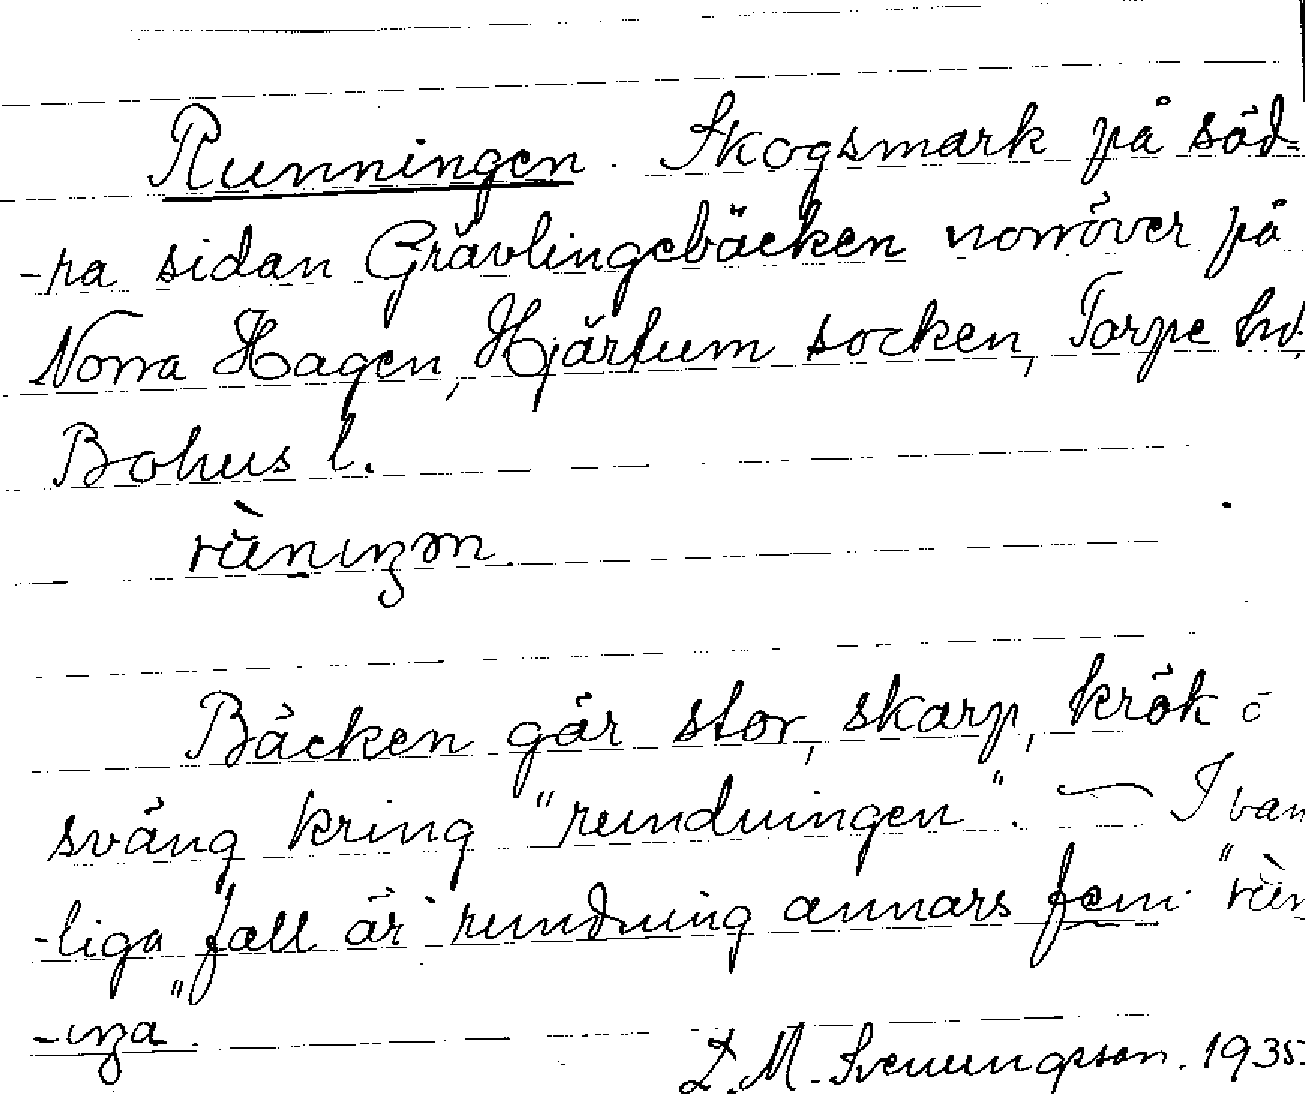 Runningen. Skogsmark på söd-
-ra sidan Grävlingebäcken norröver på
Norra Hagen, Hjärtum socken, Torpe hd.
Bohus l.
Bäcken går stor, skarp, krök o
sväng kring "rundningen". — I van
-liga fall är rundning annars fem. "rùn
-ıŋa".
D. M. Svenungsson. 1935.